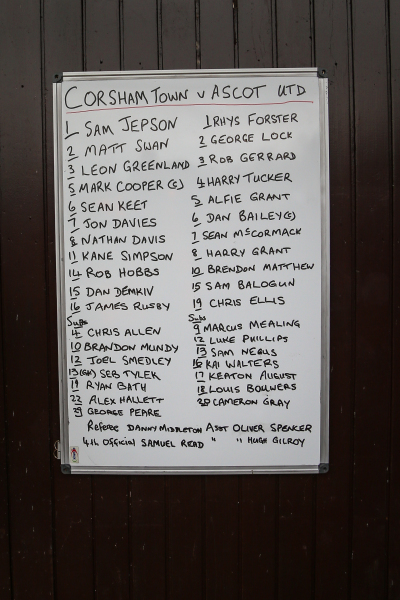 CORSHAM TOWN v ASCOT UTD
1 SAM JEPSON
2 MATT SWAN
3 LEON GREENLAND
5 MARK COOPER (c)
6 SEAN KEET
7 JON DAVIES
8 NATHAN DAVIS
11 KANE SIMPSON
14 ROB HOBBS
15 DAN DEMKIV
16 JAMES RUSBY
Subs
4 CHRIS ALLEN
10 BRANDON MUNDY
12 JOEL SMEDLEY
13 (GK) SEB TYLEK
19 RYAN BATH
22 ALEX HALLETT
29 GEORGE PEARE
1 RHYS FORSTER
2 GEORGE LOCK
3 ROB GERRARD
4 HARRY TUCKER
5 ALFIE GRANT
6 DAN BAILEY (c)
7 SEAN McCORMACK
8 HARRY GRANT
10 BRENDON MATTHEW
15 SAM BALOGUN
19 CHRIS ELLIS
Subs
9 MARCUS MEALING
12 LUKE PHILLIPS
13 SAM NEGUS
16 KAI WALTERS
17 KEATON AUGUST
18 LOUIS BOUWERS
20 CAMERON GRAY
Referee DANNY MIDDLETON Asst OLIVER SPENCER
4th Official SAMUEL READ " " HUGH GILROY